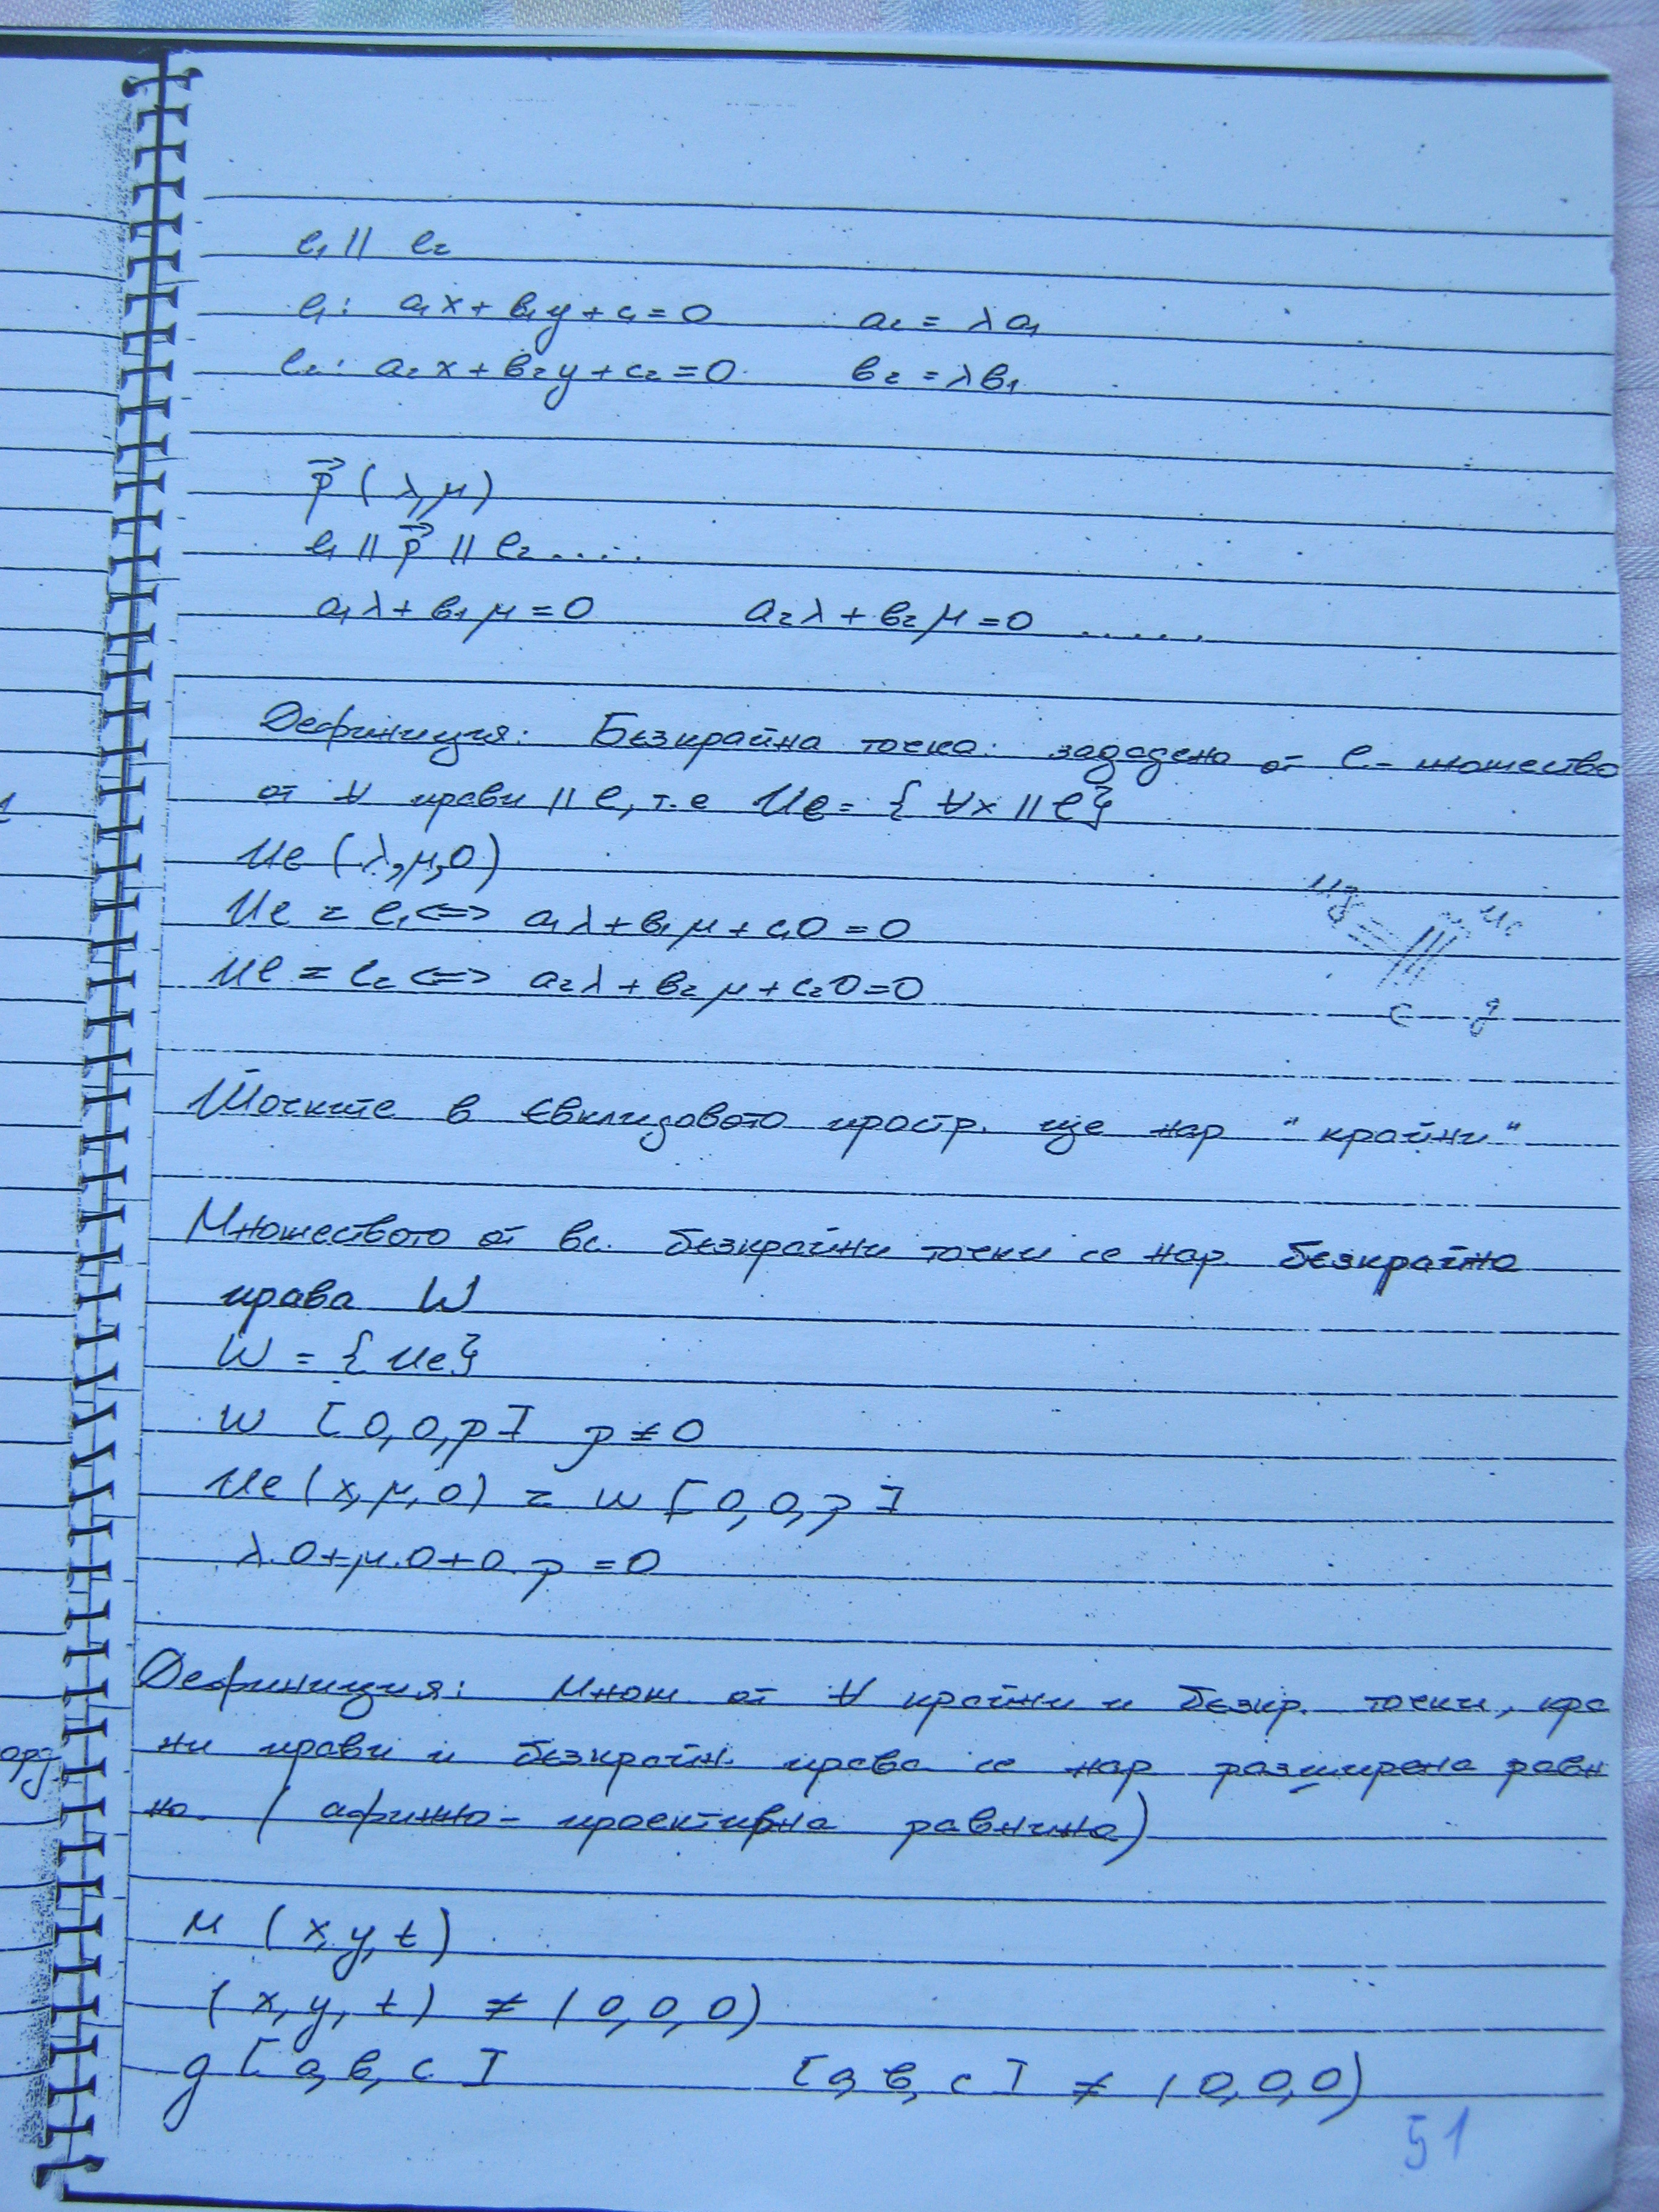 e₁ || e₂
e₁: a₁x + b₁y + c₁ = 0 a₂ = λa₁
e₂: a₂x + b₂y + c₂ = 0 b₂ = λb₁
p⃗ (λ, μ)
e₁ || p⃗ || e₂ .....
a₁λ + b₁μ = 0 a₂λ + b₂μ = 0 .....
Дефиниция: Безкрайна точка: зададена от e - множество
от ∀ прави || e, т.е Ue = { ∀x || e}
Ue (λ, μ, 0)
Ue z e₁ <=> a₁λ + b₁μ + c₁0 = 0
Ue z e₂ <=> a₂λ + b₂μ + c₂0 = 0
Ug Uc
c g
Точките в Евклидовото простр. ще нар "крайни"
Множеството от вс. безкрайни точки се нар. безкрайна
права W
W = { Ue}
w [0, 0, p] p ≠ 0
Ue (x, μ, 0) z w [0, 0, p]
λ.0 + μ.0 + 0.p = 0
Дефиниция: Множ от ∀ крайни и безкр. точки, кра
ни прави и безкрайн. права се нар разширена равн
на. (афинно-проективна равнина)
M (x, y, t)
(x, y, t) ≠ (0, 0, 0)
g [a, b, c] [a, b, c] ≠ (0, 0, 0)
51